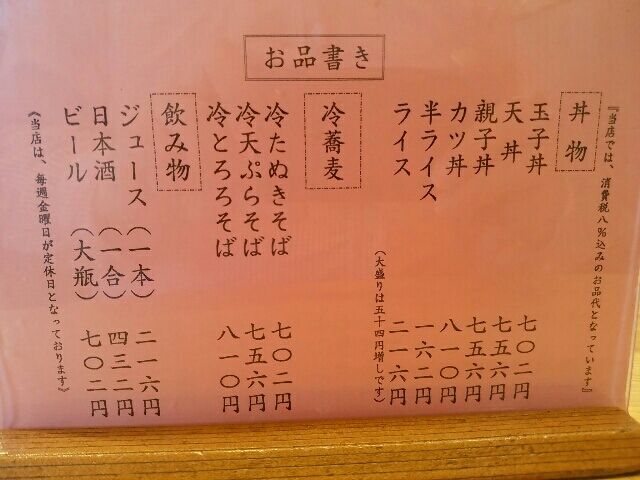 お品書き
『当店では、消費税八%込みのお品代となっています』
丼物
玉子丼 七〇二円
天丼 七五六円
親子丼 七五六円
カツ丼 八一〇円
半ライス 一六二円
ライス 二一六円
(大盛りは五十四円増しです)
冷蕎麦
冷たぬきそば 七〇二円
冷天ぷらそば 七五六円
冷とろろそば 八一〇円
飲み物
ジュース (一本) 二一六円
日本酒 (一合) 四三二円
ビール (大瓶) 七〇二円
《当店は、毎週金曜日が定休日となっております》